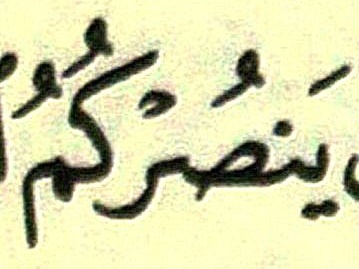 يَنصُرْكُمُ